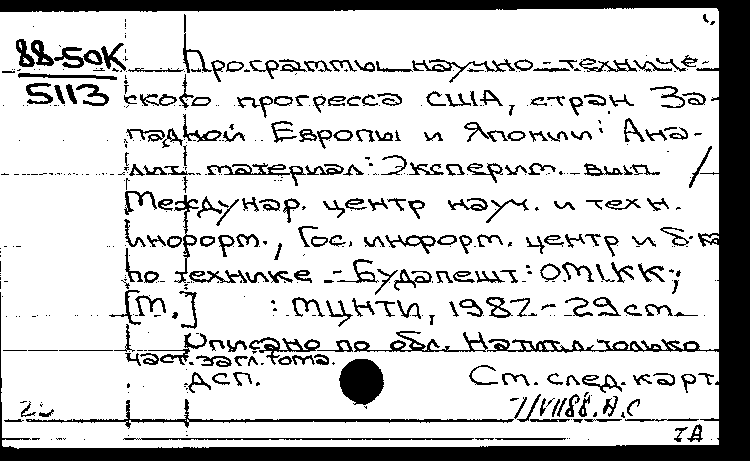 88-50К
5113
Программы научно-техниче-
ского прогресса США, стран За-
падной Европы и Японии: Ана-
лит. материал: Эксперим. вып. /
Междунар. центр науч. и техн.
информ., Гос. информ. центр и б-ка
по технике. - Будапешт: OMIKK;
[М.] : МЦНТИ, 1982 - 29 см.
Описано по обл. На титл. только
част. загл. тома.
ДСП. См. след. карт.
7/VII88. А.С